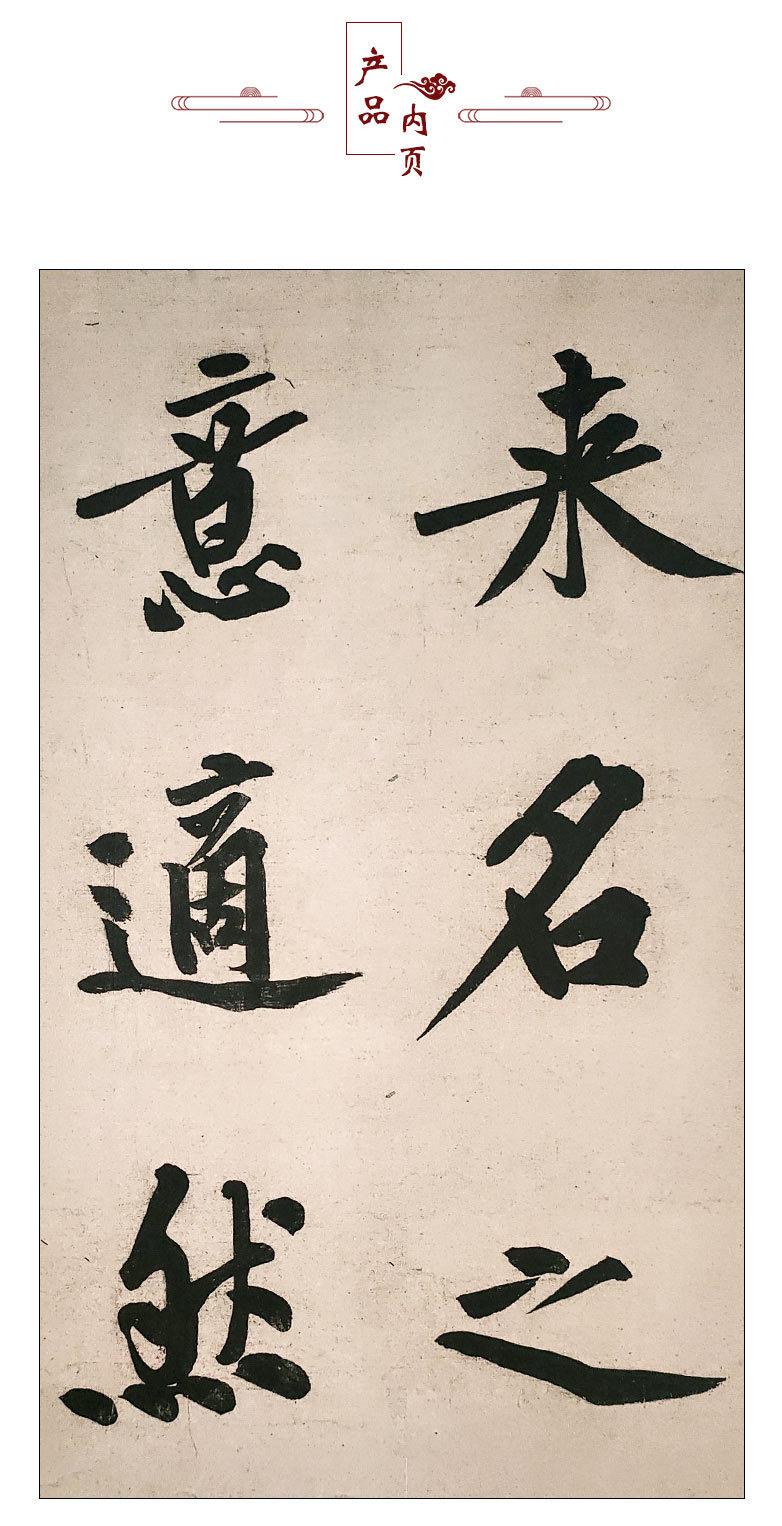 产品
内页
来名之
意適然